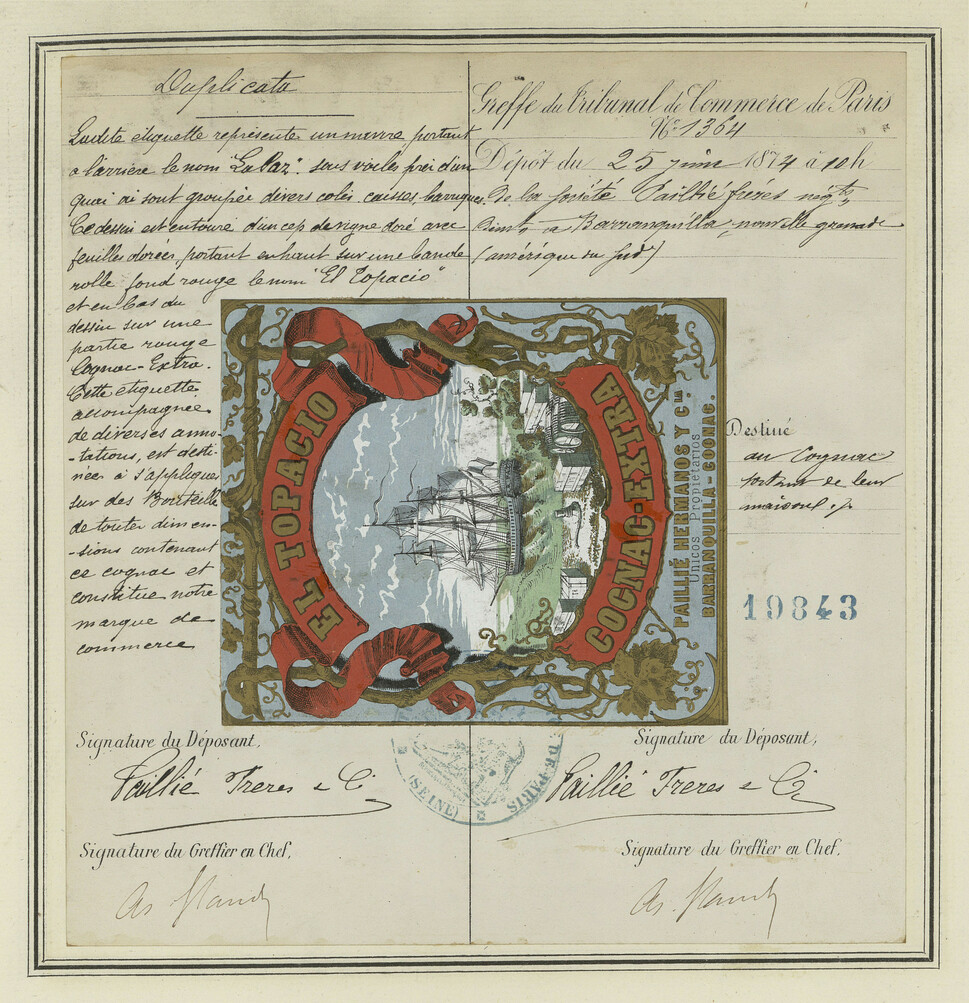 Duplicata
Ladite étiquette représente un navire portant
a l'arrière le nom "La Paz". sous voiles près d'un
quai où sont groupés divers colis, caisses, barriques.
Ce dessin est entouré d'un cep de vigne doré avec
feuilles dorées, portant en haut sur une bande
rolle fond rouge le nom "El Topacio"
et en bas du
dessin sur une
partie rouge
Cognac-Extra.
Cette étiquette
accompagnée
de diverses anno-
-tations, est desti-
née à s'appliquer
sur des Bouteilles
de toutes dimen-
-sions contenant
ce cognac et
constitue notre
marque de
commerce
Greffe du Tribunal de Commerce de Paris
N° 1364
Dépôt du 25 juin 1874 à 10h
De la société Paillié frères négts
dimts a Barranquilla, nouvelle grenade
(amérique du Sud)
EL TOPACIO
COGNAC-EXTRA
PAILLIÉ HERMANOS Y Cia
Unicos Propietarios
BARRANQUILLA-COGNAC.
Destiné
au Cognac
sortant de leur
maison
19843
Signature du Déposant,
Paillié Freres & Ci
Signature du Greffier en Chef,
(SEINE)
DE PARIS
Signature du Déposant,
Paillié Freres & Ci
Signature du Greffier en Chef,